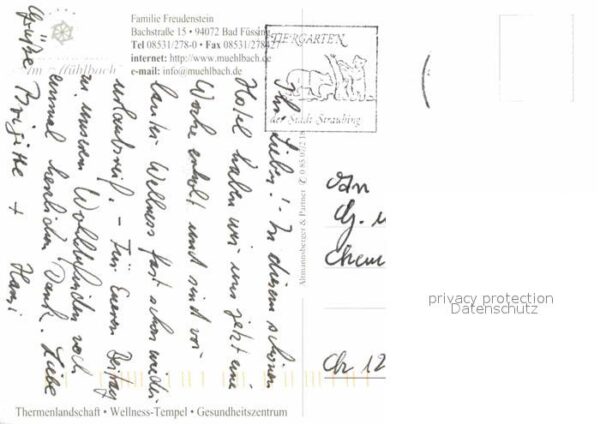 Familie Freudenstein
Bachstraße 15 • 94072 Bad Füssing
Tel 08531/278-0 • Fax 08531/278427
internet: http://www.muehlbach.de
e-mail: info@muehlbach.de
Am Mühlbach
TIERGARTEN
der Stadt Straubing
Ihr Lieben! In diesem schönen
Hotel haben wir uns jetzt eine
Woche erholt und sind vor
lauter Wellness fast schon wieder
urlaubsreif. – Für Euren Beitrag
zu unserem Wohlbefinden noch
einmal herzlichen Dank. Liebe
Grüße Brigitte + Hansi
Ahmannsberger & Partner
An
Chem
Thermenlandschaft • Wellness-Tempel • Gesundheitszentrum
privacy protection
Datenschutz